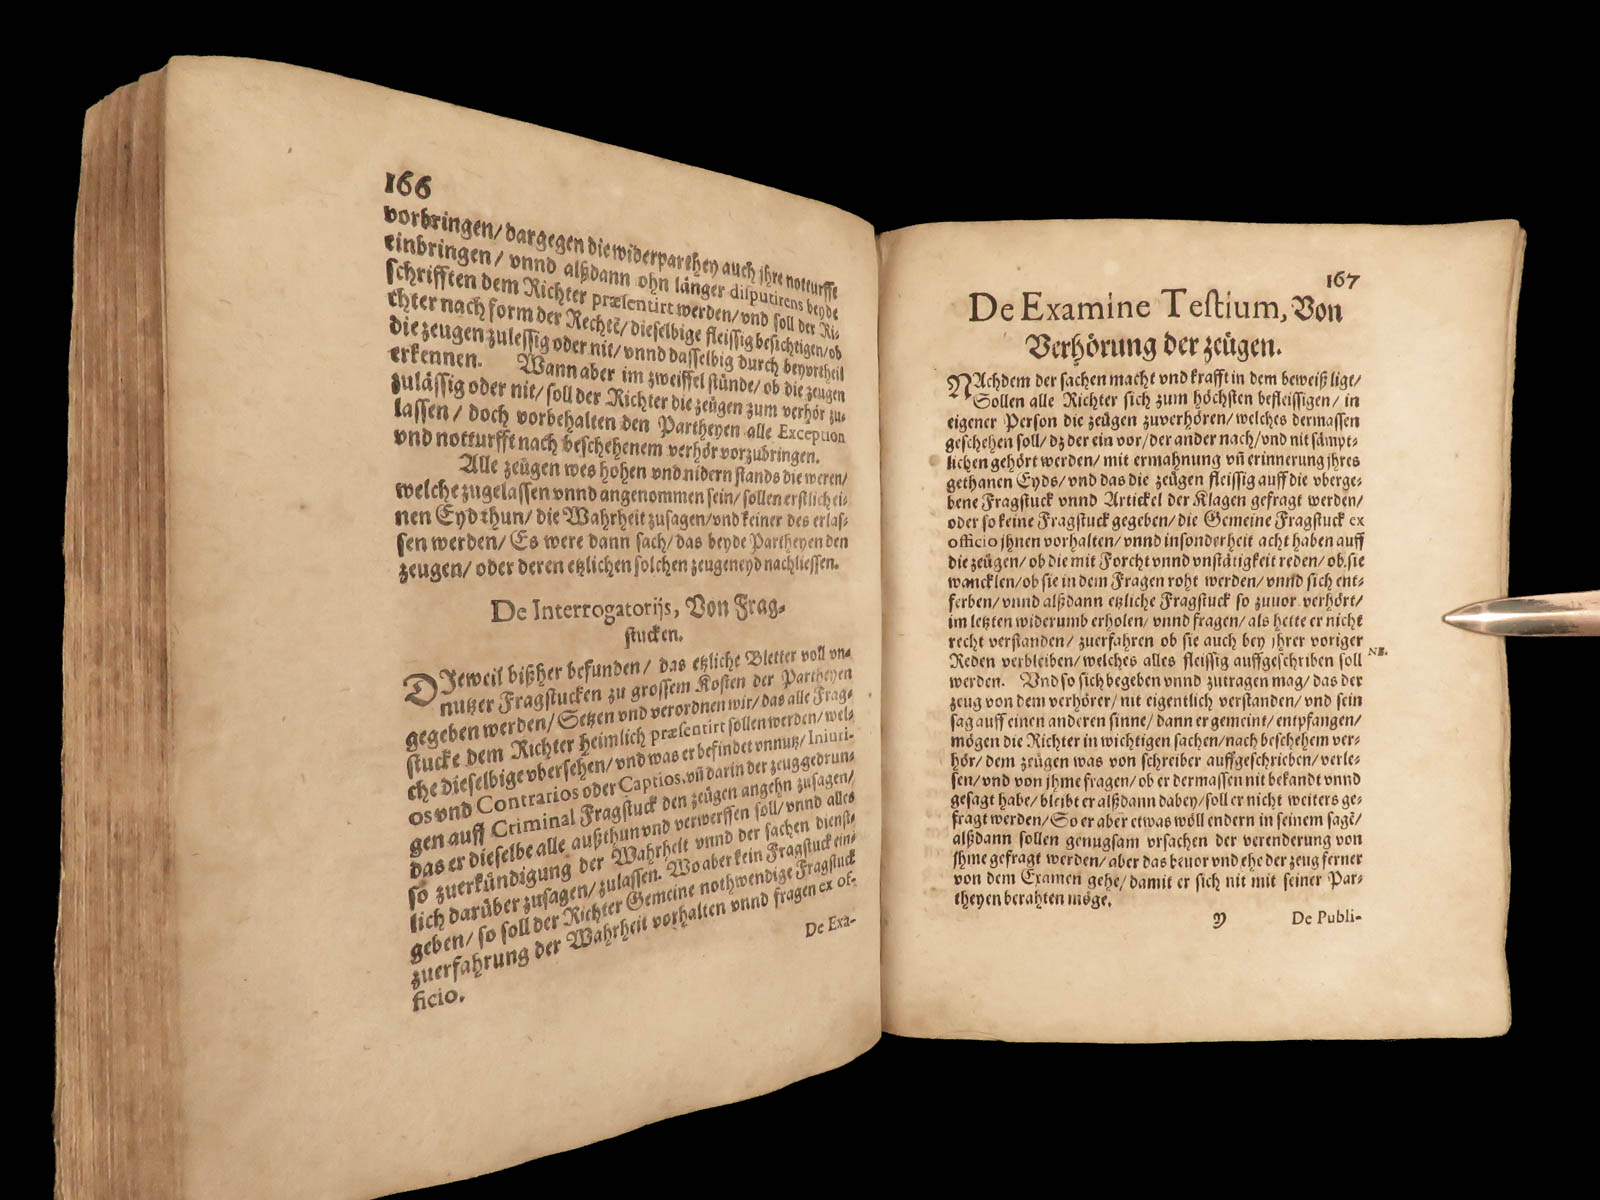 166
vorbringen/ dargegen die widerparthey auch jhre notturfft
einbringen/ vnnd alßdann ohn länger disputirens beyde
schrifften dem Richter præsentirt werden/ vnd soll der Ri-
chter nach form der Rechtē/ dieselbige fleissig besichtigen/ ob
die zeugen zulessig oder nit/ vnnd dasselbig durch beyvrtheil
erkennen. Wann aber im zweiffel stünde/ ob die zeugen
zulässig oder nit/ soll der Richter die zeügen zum verhör zu-
lassen/ doch vorbehalten den Partheyen alle Exception
vnd notturfft nach beschehenem verhör vorzubringen.
Alle zeügen wes hohen vnd nidern stands die weren/
welche zugelassen vnnd angenommen sein/ sollen erstlich ei-
nen Eyd thun/ die Wahrheit zusagen/ vnd keiner des erlas-
sen werden/ Es were dann sach/ das beyde Partheyen den
zeugen/ oder deren etzlichen solchen zeugeneyd nachliessen.
De Interrogatorijs, Von Frag-
stucken.
DJeweil bißher befunden/ das etzliche Bletter voll vn-
nutzer Fragstucken zu grossem Kosten der Partheyen
gegeben werden/ Setzen vnd verordnen wir/ das alle Frag-
stucke dem Richter heimlich præsentirt sollen werden/ wel-
che dieselbige vbersehen/ vnd was er befindet vnnutz/ Iniuri-
os vnd Contrarios oder Captios, vn̄ darin der zeug gedrun-
gen auff Criminal Fragstuck den zeügen angehn zusagen/
das er dieselbe alle außthun vnd verwerffen soll/ vnnd alles
so zuerkündigung der Wahrheit vnnd der sachen dienst-
lich darüber zusagen/ zulassen. Wo aber kein Fragstuck ein-
geben/ so soll der Richter Gemeine nothwendige Fragstuck
zuerfahrung der Wahrheit vorhalten vnnd fragen ex of-
ficio.
De Exa-
167
De Examine Testium, Von
Verhörung der zeügen.
NAchdem der sachen macht vnd krafft in dem beweiß ligt/
Sollen alle Richter sich zum höchsten befleissigen/ in
eigener Person die zeügen zuverhören/ welches dermassen
geschehen soll/ dz der ein vor/ der ander nach/ vnd nit sämpt-
lichen gehört werden/ mit ermahnung vn̄ erinnerung jhres
gethanen Eyds/ vnd das die zeügen fleissig auff die vberge-
bene Fragstuck vnnd Artickel der Klagen gefragt werden/
oder so keine Fragstuck gegeben/ die Gemeine Fragstuck ex
officio jhnen vorhalten/ vnnd insonderheit acht haben auff
die zeügen/ ob die mit Forcht vnnd vnstätigkeit reden/ ob sie
wancklen/ ob sie in dem Fragen roht werden/ vnnd sich ent-
ferben/ vnnd alßdann etzliche Fragstuck so zuuor verhört/
im letzten widerumb erholen/ vnnd fragen/ als hette er nicht
recht verstanden/ zuerfahren ob sie auch bey jhrer voriger
Reden verbleiben/ welches alles fleissig auffgeschriben soll
NB.
werden. Vnd so sich begeben vnnd zutragen mag/ das der
zeug von dem verhörer/ nit eigentlich verstanden/ vnd sein
sag auff einen anderen sinne/ dann er gemeint/ entpfangen/
mögen die Richter in wichtigen sachen/ nach beschehem ver-
hör/ dem zeügen was von schreiber auffgeschrieben/ verle-
sen/ vnd von jhme fragen/ ob er dermassen nit bekandt vnnd
gesagt habe/ bleibt er alßdann dabey/ soll er nicht weiters ge-
fragt werden/ So er aber etwas wöll endern in seinem sagē/
alßdann sollen genugsam vrsachen der verenderung von
jhme gefragt werden/ aber das beuor vnd ehe der zeug ferner
von dem Examen gehe/ damit er sich nit mit seiner Par-
theyen berahten möge.
Y
De Publi-